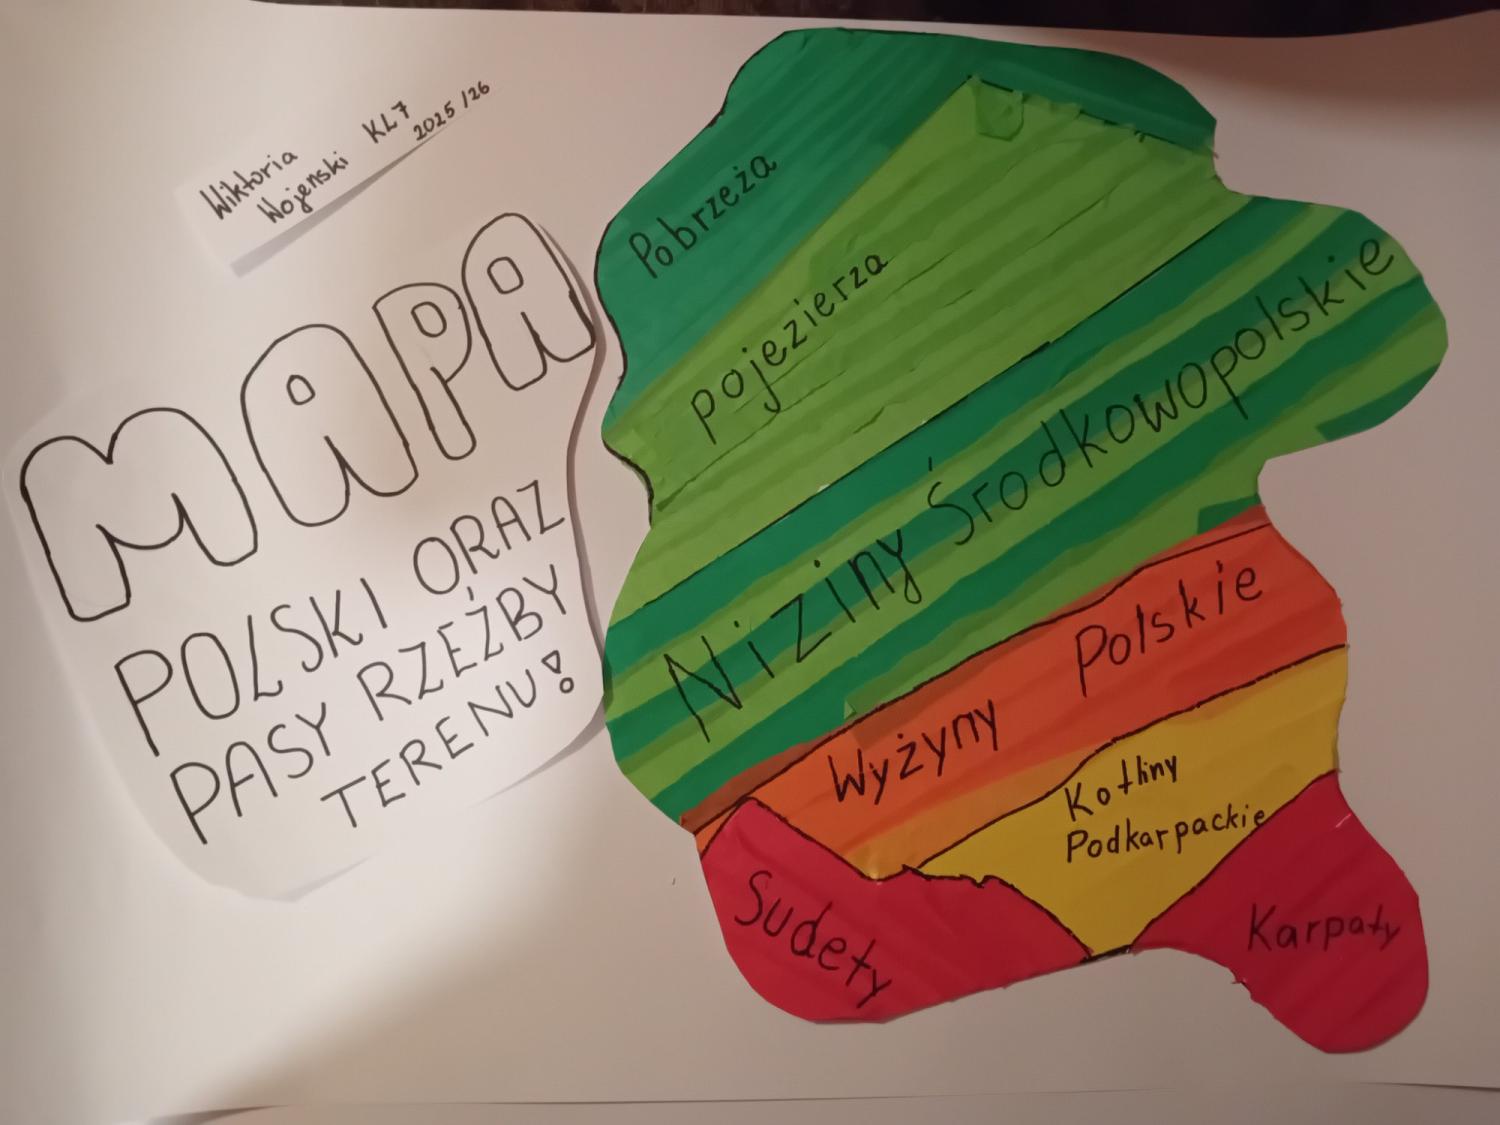 Wiktoria
Wojenski KL7
2025/26
MAPA
POLSKI ORAZ
PASY RZEŹBY
TERENU!
Pobrzeża
pojezierza
Niziny Środkowopolskie
Wyżyny Polskie
Kotliny
Podkarpackie
Sudety
Karpaty